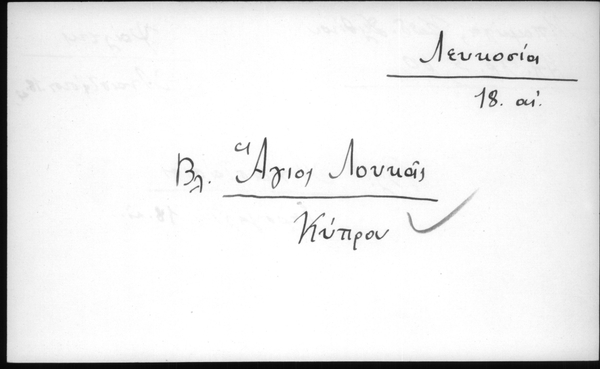 Λευκοσία
18. αἰ.
Βλ. Ἅγιος Λουκᾶς
Κύπρου